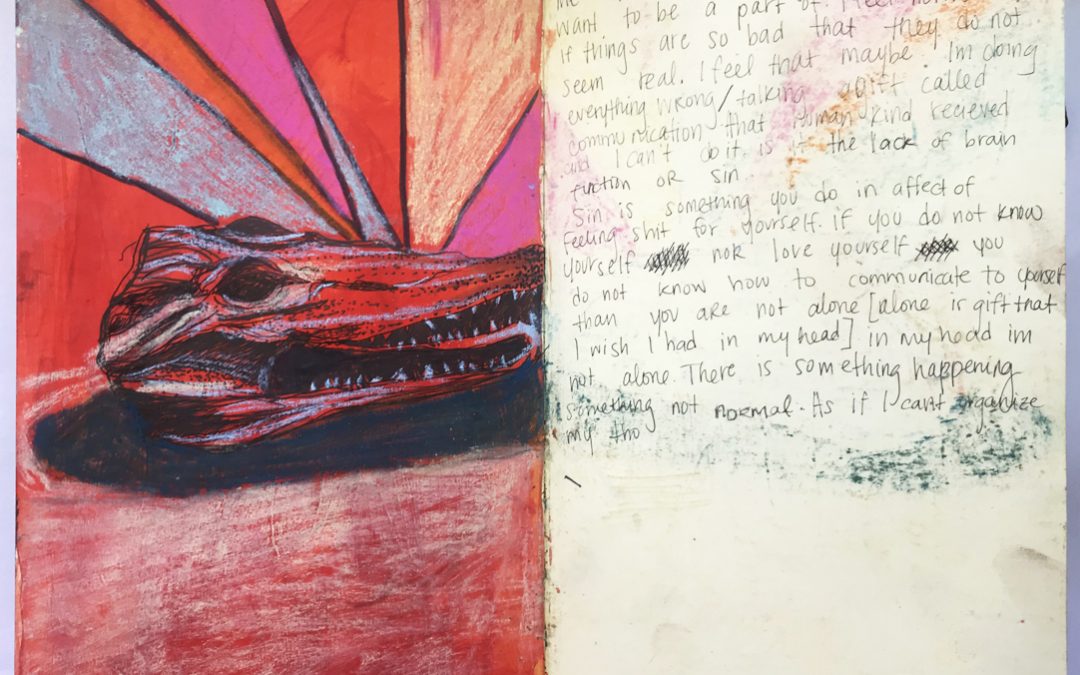 want to be a part of. I feel
if things are so bad that they do not
seem real. I feel that maybe Im doing
everything wrong/talking a gift called
communication that human kind recieved
and I can't do it. is it the lack of brain
OR sin
Sin is something you do in affect of
feeling shit for yourself. if you do not know
yourself nor love yourself you
do not know how to communicate to yourself
than you are not alone [alone is gift that
I wish I had in my head] in my head im
not alone. There is something happening
something not normal. As if I cant organize
my tho